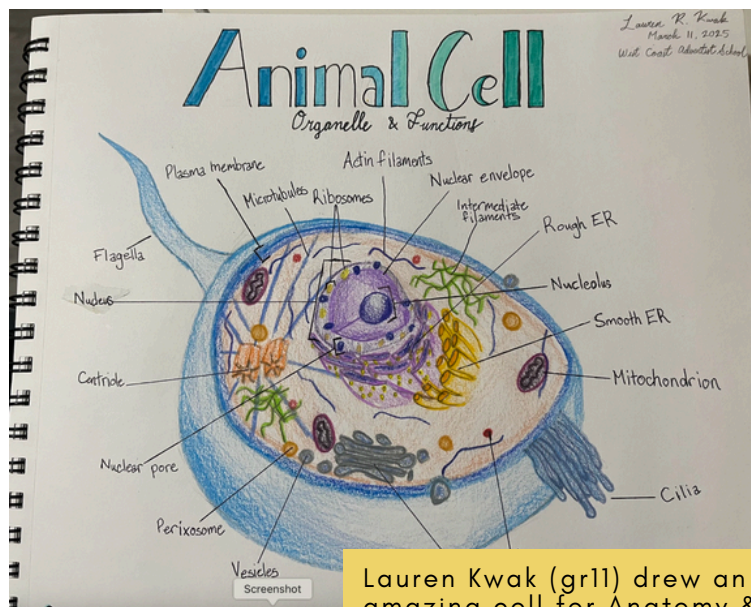 Lauren R. Kwak
March 11, 2025
West Coast Adventist School
Animal Cell
Organelle & Functions
Plasma membrane
Microtubules
Ribosomes
Actin filaments
Nuclear envelope
Intermediate
filaments
Rough ER
Flagella
Nucleus
Nucleolus
Smooth ER
Centriole
Mitochondrion
Nuclear pore
Cilia
Perixosome
Vesicles
Screenshot
Lauren Kwak (gr11) drew an
amazing cell for Anatomy &